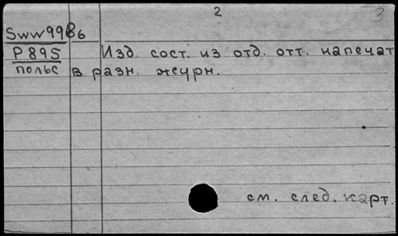 2 3
Sww99B6
P89S Изд. сост. из отд. отт. напечат.
польс в разн. журн.
см. след. карт.